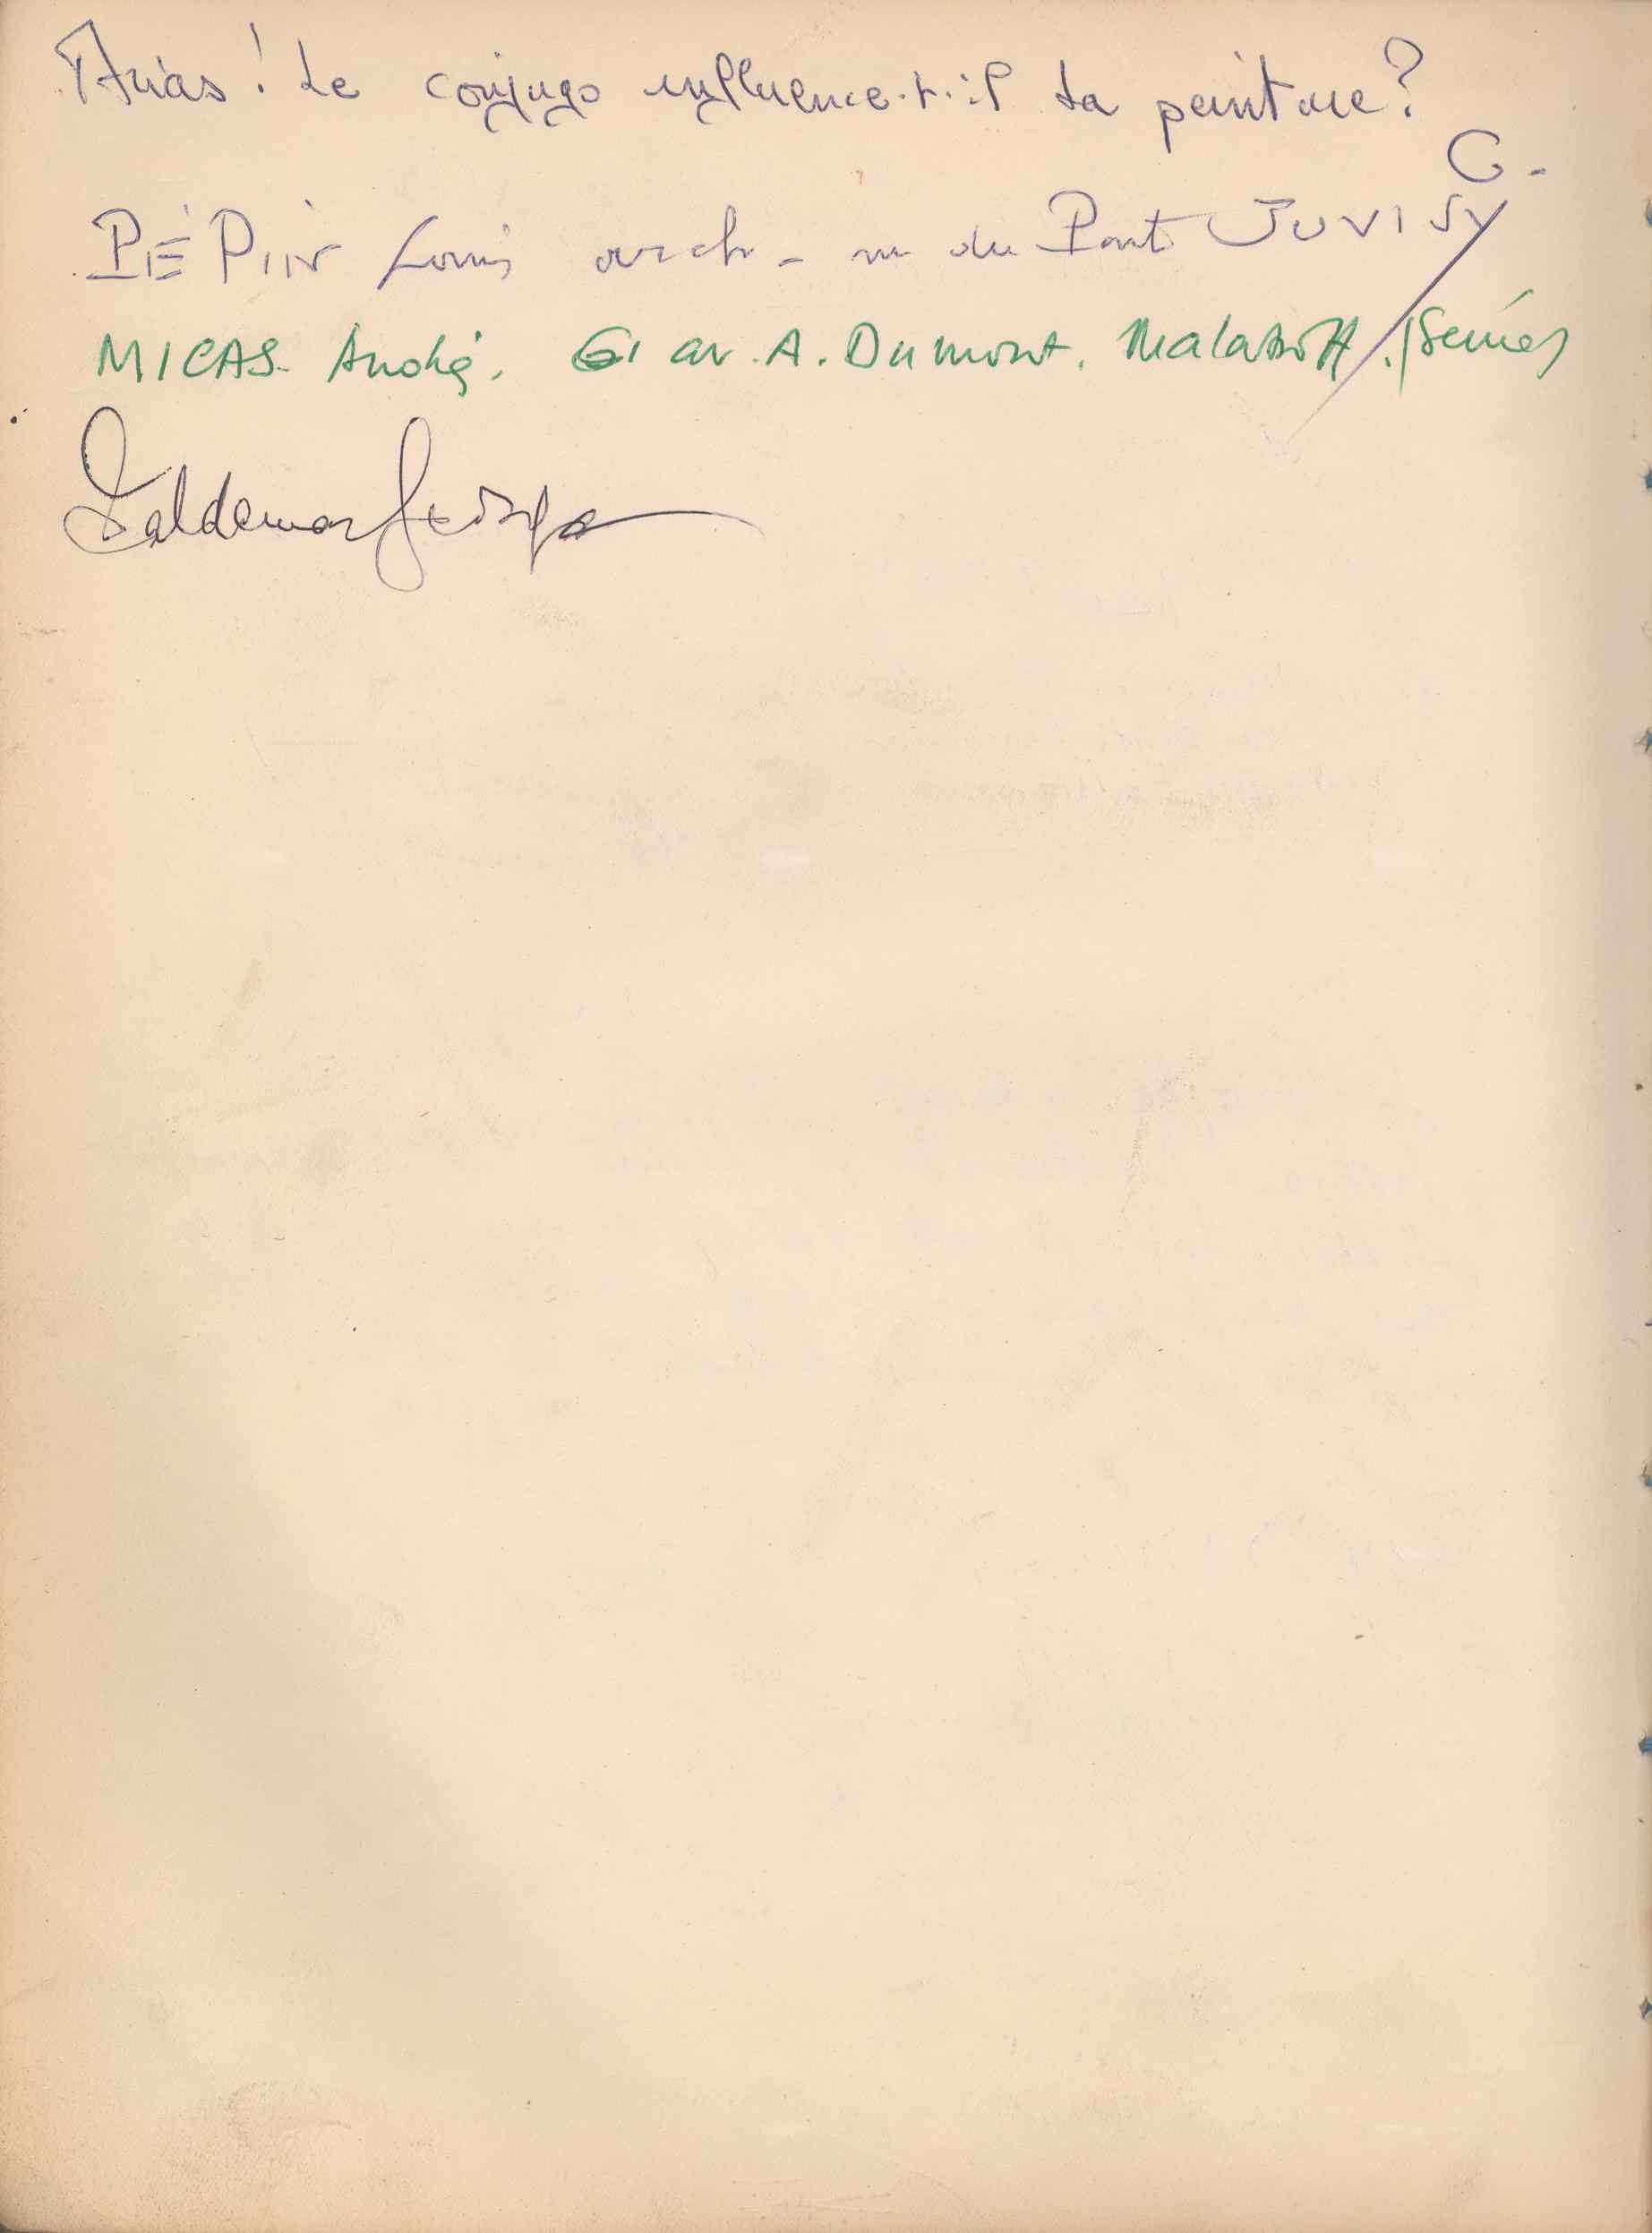 Arias! Le conjugo influence-t-il ta peinture?
G.
PÉPIN Louis arch - rue du Pont JUVISY
MICAS. André. 61 av. A. Dumont. Malakoff. (Seine)
Waldemar George